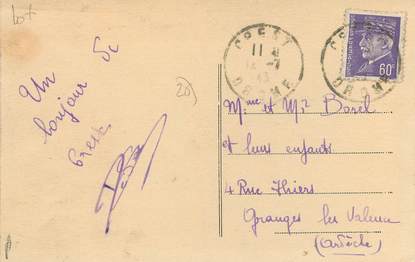 lot
Un
bonjour de
Crest
20)
CREST
11
DROME
CREST
DROME
60c
Mme et Mr Borel
et leurs enfants
4 Rue Thiers
Granges les Valence
(Ardèche)